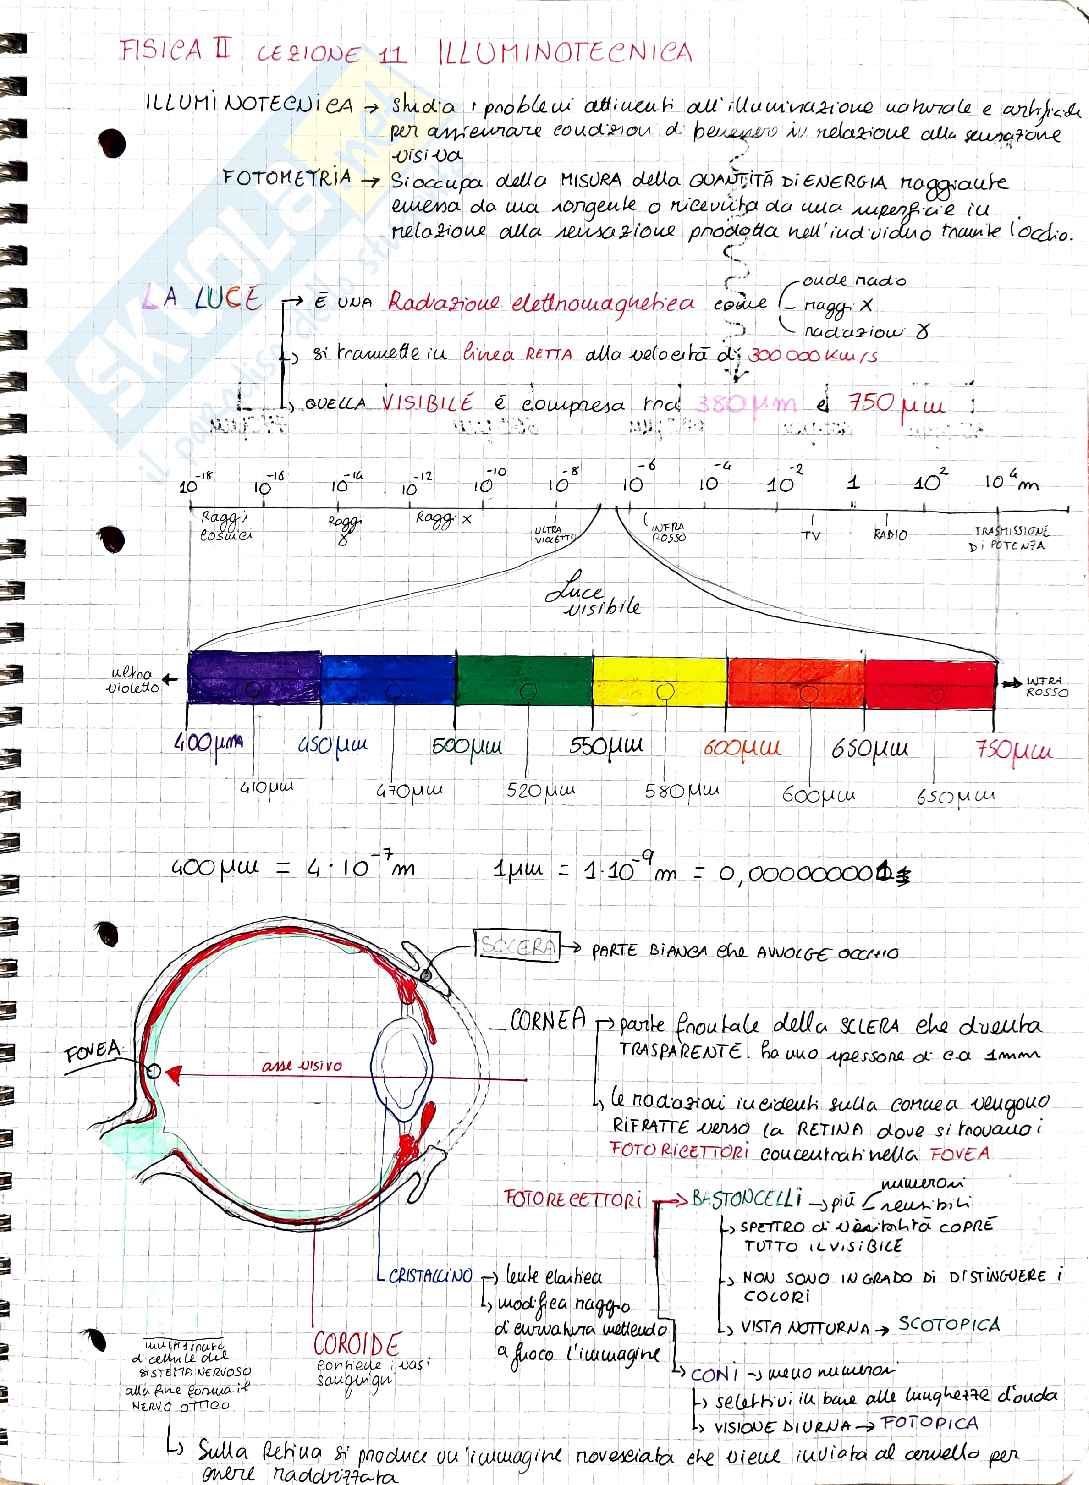 FISICA II LEZIONE 11 ILLUMINOTECNICA
ILLUMINOTECNICA → Studia i problemi attinenti all'illuminazione naturale e artificiale
per assicurare condizioni di benessere in relazione alla sensazione
visiva
FOTOMETRIA → Si occupa della MISURA della QUANTITÀ DI ENERGIA raggiante
emessa da una sorgente o ricevuta da una superficie in
relazione alla sensazione prodotta nell'individuo tramite l'occhio.
LA LUCE → È UNA Radiazione elettromagnetica come
onde radio
raggi X
radiazioni γ
↳ si trasmette in linea RETTA alla velocità di 300 000 km/s
↳ QUELLA VISIBILE è compresa tra 380 μm e 750 μm
10⁻¹⁸ 10⁻¹⁶ 10⁻¹⁴ 10⁻¹² 10⁻¹⁰ 10⁻⁸ 10⁻⁶ 10⁻⁴ 10⁻² 1 10² 10⁴ m
Raggi cosmici
Raggi γ
Raggi X
ULTRA VIOLETTO
INFRA ROSSO
TV
RADIO
TRASMISSIONE DI POTENZA
Luce
visibile
ultra
violetto ←
→ INFRA
ROSSO
400μm 450μm 500μm 550μm 600μm 650μm 750μm
410μm 470μm 520μm 580μm 600μm 650μm
400μm = 4·10⁻⁷m 1μm = 1·10⁻⁹m = 0,000000001
SCLERA → PARTE BIANCA che AVVOLGE OCCHIO
CORNEA → parte frontale della SCLERA che diventa
TRASPARENTE. ha uno spessore di ca 1mm
FOVEA
asse visivo
↳ le radiazioni incidenti sulla cornea vengono
RIFRATTE verso la RETINA dove si trovano i
FOTORICETTORI concentrati nella FOVEA
FOTORECETTORI → BASTONCELLI → più
numerosi
sensibili
↳ SPETTRO di visibilità COPRE
TUTTO IL VISIBILE
↳ NON SONO IN GRADO DI DISTINGUERE i
COLORI
↳ VISTA NOTTURNA → SCOTOPICA
CRISTALLINO → lente elastica
↳ modifica raggio
di curvatura mettendo
a fuoco l'immagine
COROIDE
contiene i vasi
sanguigni
di cellule del
SISTEMA NERVOSO
alla fine forma il
NERVO OTTICO
↳ CONI → meno numerosi
↳ selettivi in base alle lunghezze d'onda
↳ VISIONE DIURNA → FOTOPICA
↳ Sulla Retina si produce un'immagine rovesciata che viene inviata al cervello per
essere raddrizzata
SKUOLA.net